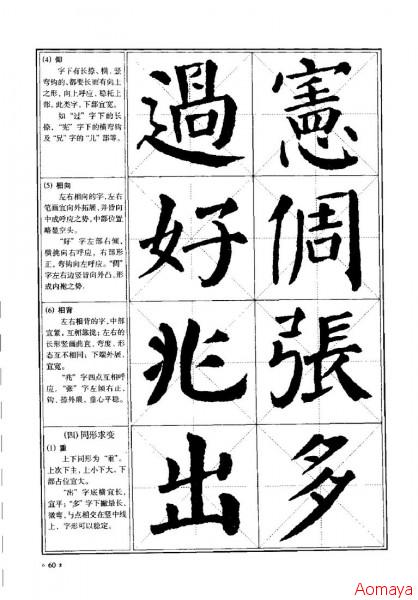 (4) 仰
字下有长捺、横、竖
弯钩的，都要长而有向上
之形，向上呼应，稳托上
部。此类字，下部宜宽。
如“过”字下的长
捺，“宪”字下的横弯钩
及“兄”字的“儿”部等。
過 憲
(5) 相向
左右相向的字，左右
笔画宜向外拓展，并皆向
中成呼应之势，中部位置
略显空头。
“好”字左部右倾，
横挑向右呼应，右部形
正，弯钩向左呼应。“倜”
字左右边竖皆向外凸，形
成内抱之势。
好 倜
(6) 相背
左右相背的字，中部
宜紧，互相靠拢；左右的
长形竖画曲直、弯度、形
态互不相同；下端外展，
宜宽。
“兆”字四点互相呼
应，“张”字左倾右正，
钩、捺外展，重心平稳。
兆 張
(四) 同形求变
(1) 重
上下同形为“重”。
上次下主，上小下大，下
部占位宜大。
“出”字底横宜长，
宜平；“多”字下撇最长、
微弯，与点相交在竖中线
上，字形可以稳定。
出 多
60
Aomaya